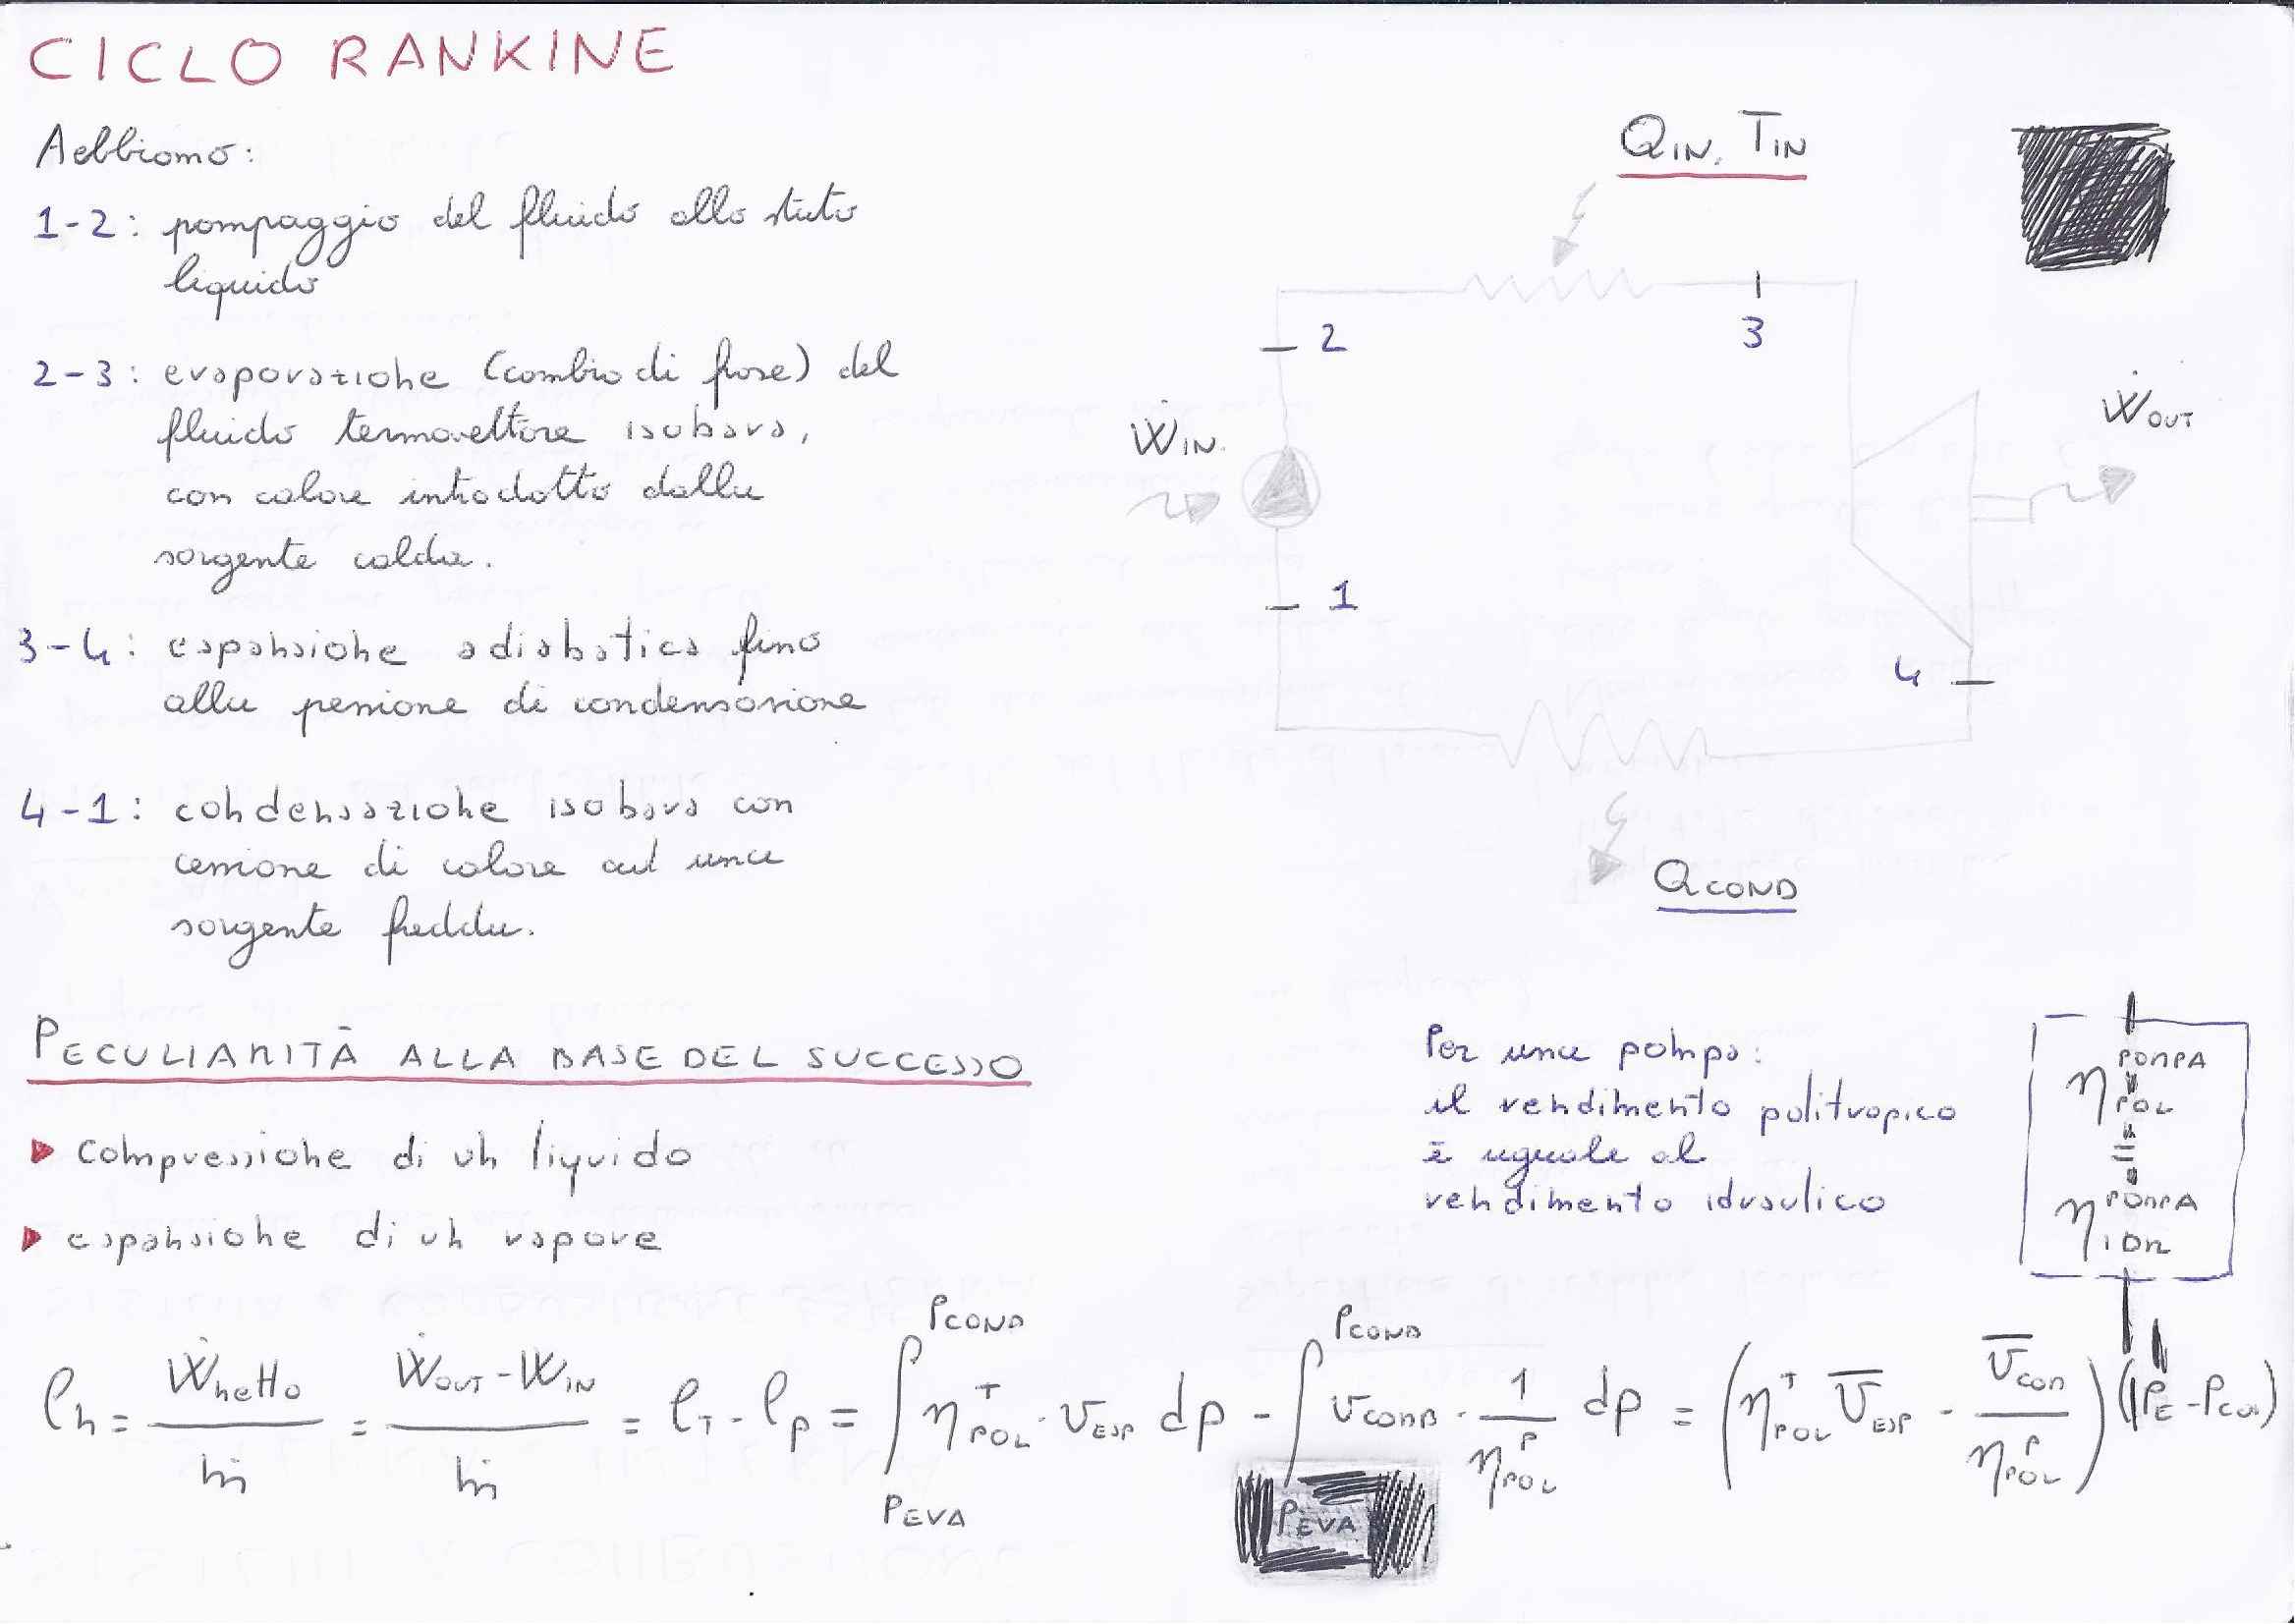 CICLO RANKINE
Abbiamo:
1-2: pompaggio del fluido allo stato
liquido
2-3: evaporazione (cambio di fase) del
fluido termovettore isobara,
con calore introdotto dalla
sorgente calda.
3-4: espansione adiabatica fino
alla pressione di condensazione
4-1: condensazione isobara con
cessione di calore ad una
sorgente fredda.
Q_IN, T_IN
2
3
Ẇ_IN
Ẇ_OUT
1
4
Q_COND
PECULIARITÀ ALLA BASE DEL SUCCESSO
▶ compressione di un liquido
▶ espansione di un vapore
Per una pompa:
il rendimento politropico
è uguale al
rendimento idraulico
η_POL^POMPA
=
η_IDR^POMPA
l_n = Ẇ_netto / ṁ = (Ẇ_OUT - Ẇ_IN) / ṁ = l_T - l_p = ∫_{P_EVA}^{P_COND} η_POL^T · v_ESP dp - ∫_{P_EVA}^{P_COND} v_COND · 1/η_POL^P dp = (η_POL^T v̄_ESP - v̄_CON / η_POL^P) (P_E - P_CON)